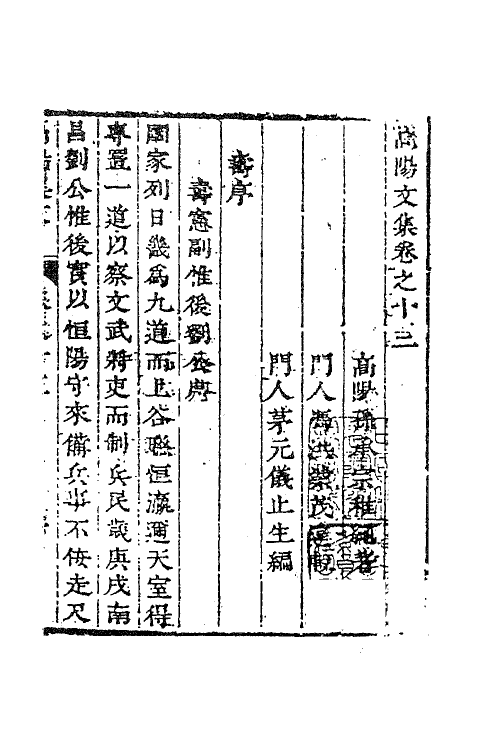 高陽文集卷之十三
高陽孫承宗稚繩著
門人馮洪業茂遠
門人茅元儀止生編
壽序
壽憲副惟後劉公序
國家列日畿為九道而上谷聯恒瀛邇天室得
專置一道以察文武將吏而制兵民歲庚戌南
昌劉公惟後實以恒陽守來備兵事不佞走尺